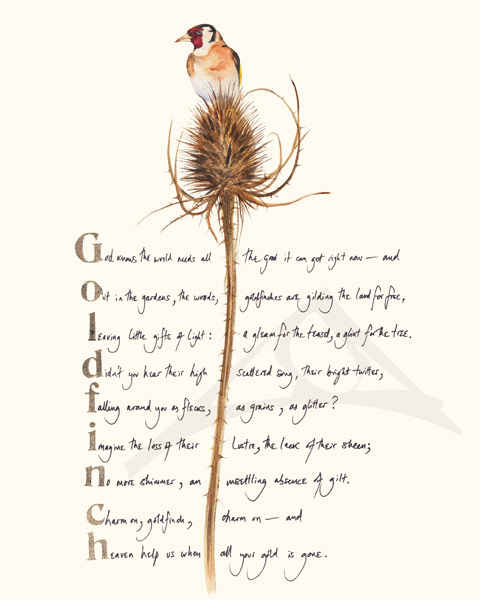 God knows the world needs all the good it can get right now — and
out in the gardens, the woods, goldfinches are gilding the land for free,
leaving little gifts of light: a gleam for the teasel, a glint for the tree.
didn't you hear their high scattered song, their bright twitter,
falling around you as flecks, as grains, as glitter?
imagine the loss of their lustre, the lack of their sheen;
no more shimmer, an unsettling absence of gilt.
charm on, goldfinch, charm on — and
heaven help us when all your gold is gone.